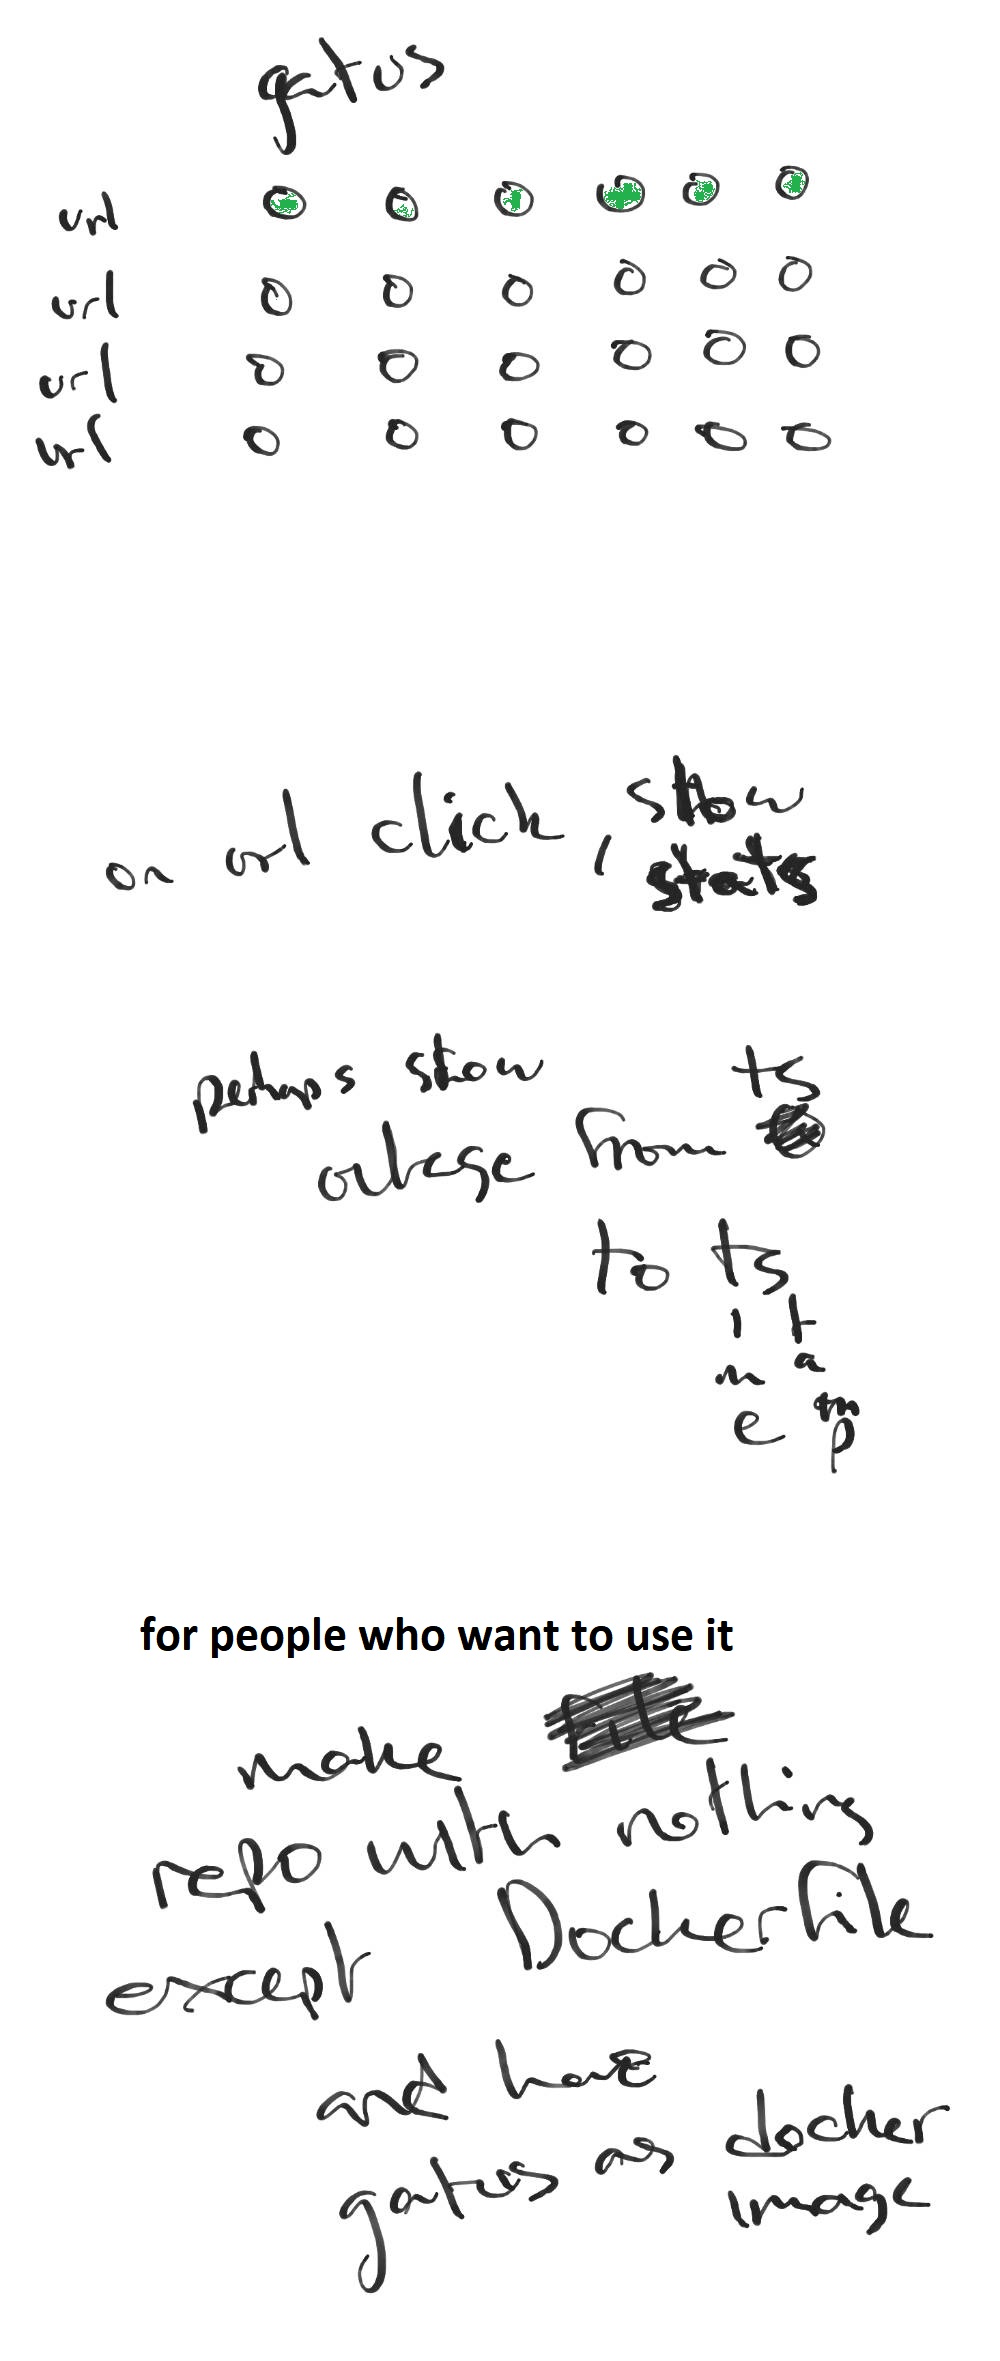 gatus
url
url
url
url
on url click, show
stats
perhaps show
outage from ts
to ts
i t
m a
e m
p
for people who want to use it
make
repo with nothing
except Dockerfile
and have
gatus as docker
image